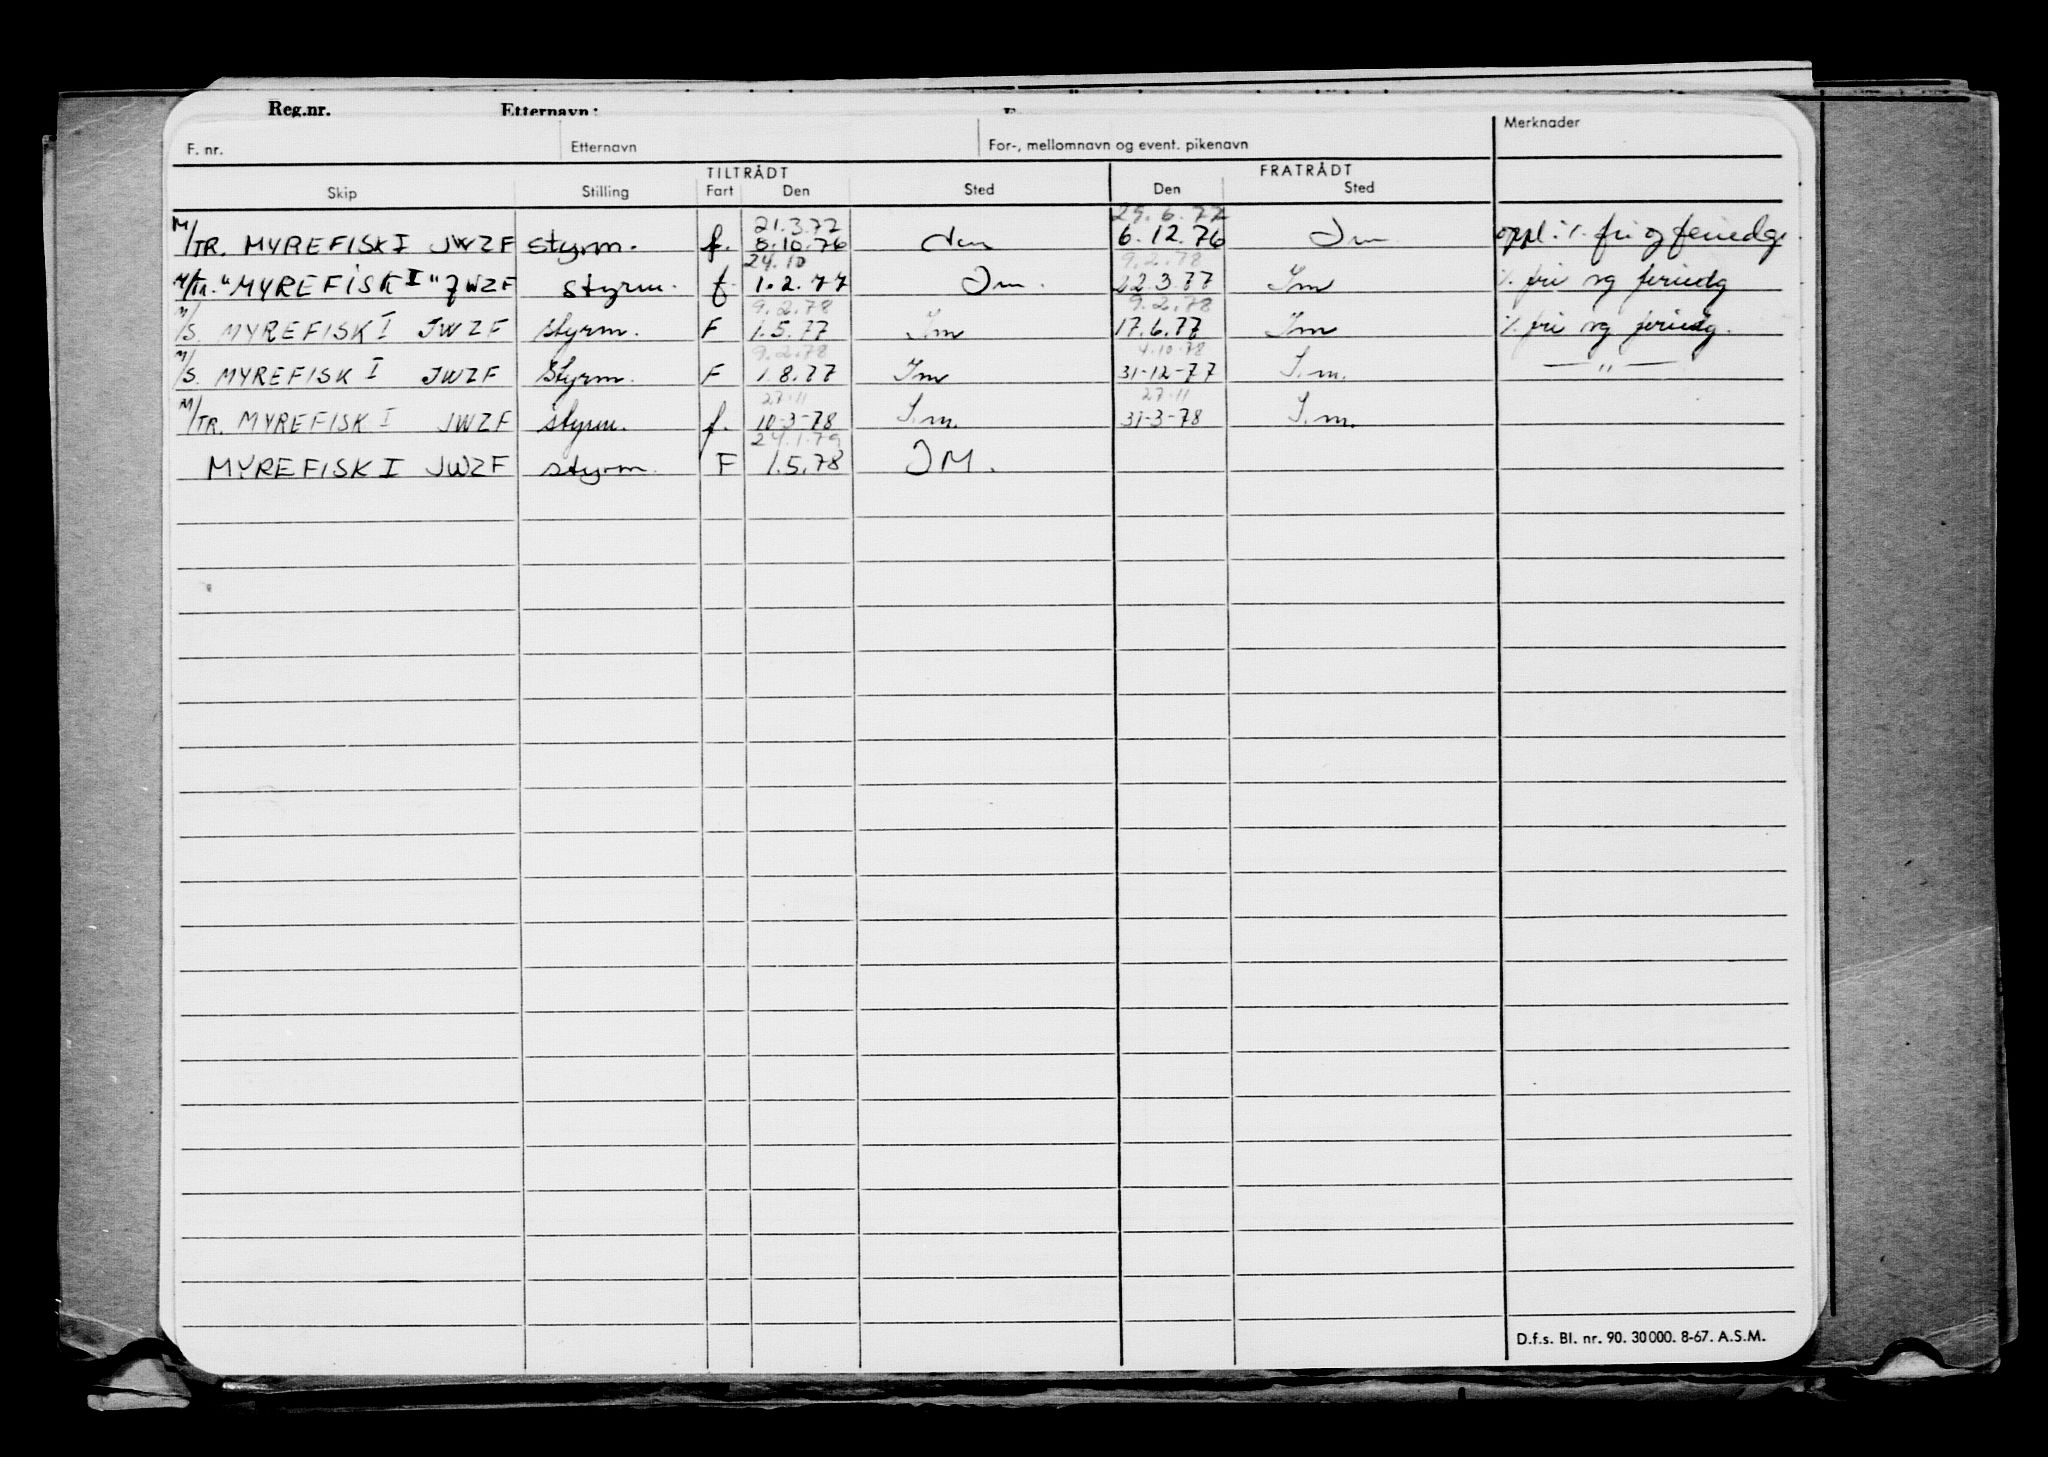 Reg.nr. Etternavn:
F. nr. Etternavn For-, mellomnavn og event. pikenavn Merknader
TILTRÅDT FRATRÅDT
Skip Stilling Fart Den Sted Den Sted
21.3.77 29.6.77
M/TR. MYREFISK I JWZF styrm. f. 8.10.76 6.12.76 Im oppl: ./. fri og feriedge.
24.10 9.2.78
M/TR. "MYREFISK I" JWZF styrm. f. 1.2.77 Im. 22.3.77 Im ./. fri og feriedg
9.2.78 9.2.78
M/S. MYREFISK I JWZF styrm. F 1.5.77 Im 17.6.77 Im ./. fri og feriedg.
9.2.78 4.10.78
M/S. MYREFISK I JWZF Styrm. F 1.8.77 Im 31-12-77 I.m. — " —
27.11 27.11
M/TR. MYREFISK I JWZF styrm. f. 10-3-78 I.m. 31-3-78 I.m.
24.1.79
MYREFISK I JWZF styrm. F 1.5.78 IM.
D.f.s. Bl. nr. 90. 30000. 8-67. A.S.M.